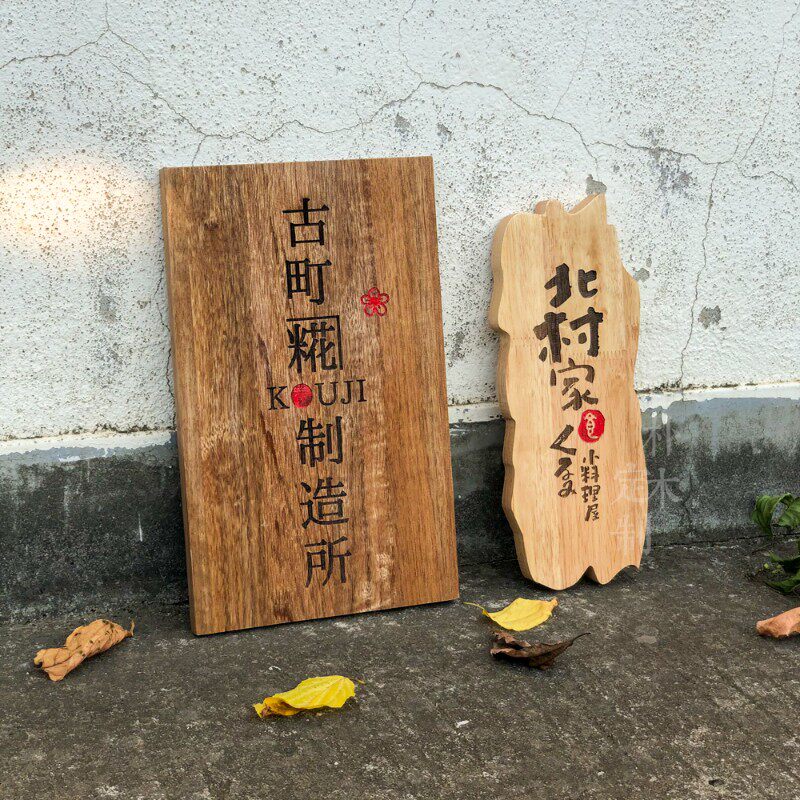 古町糀制造所
KOUJI
北村家
くるみ
小料理屋
朴木
定制